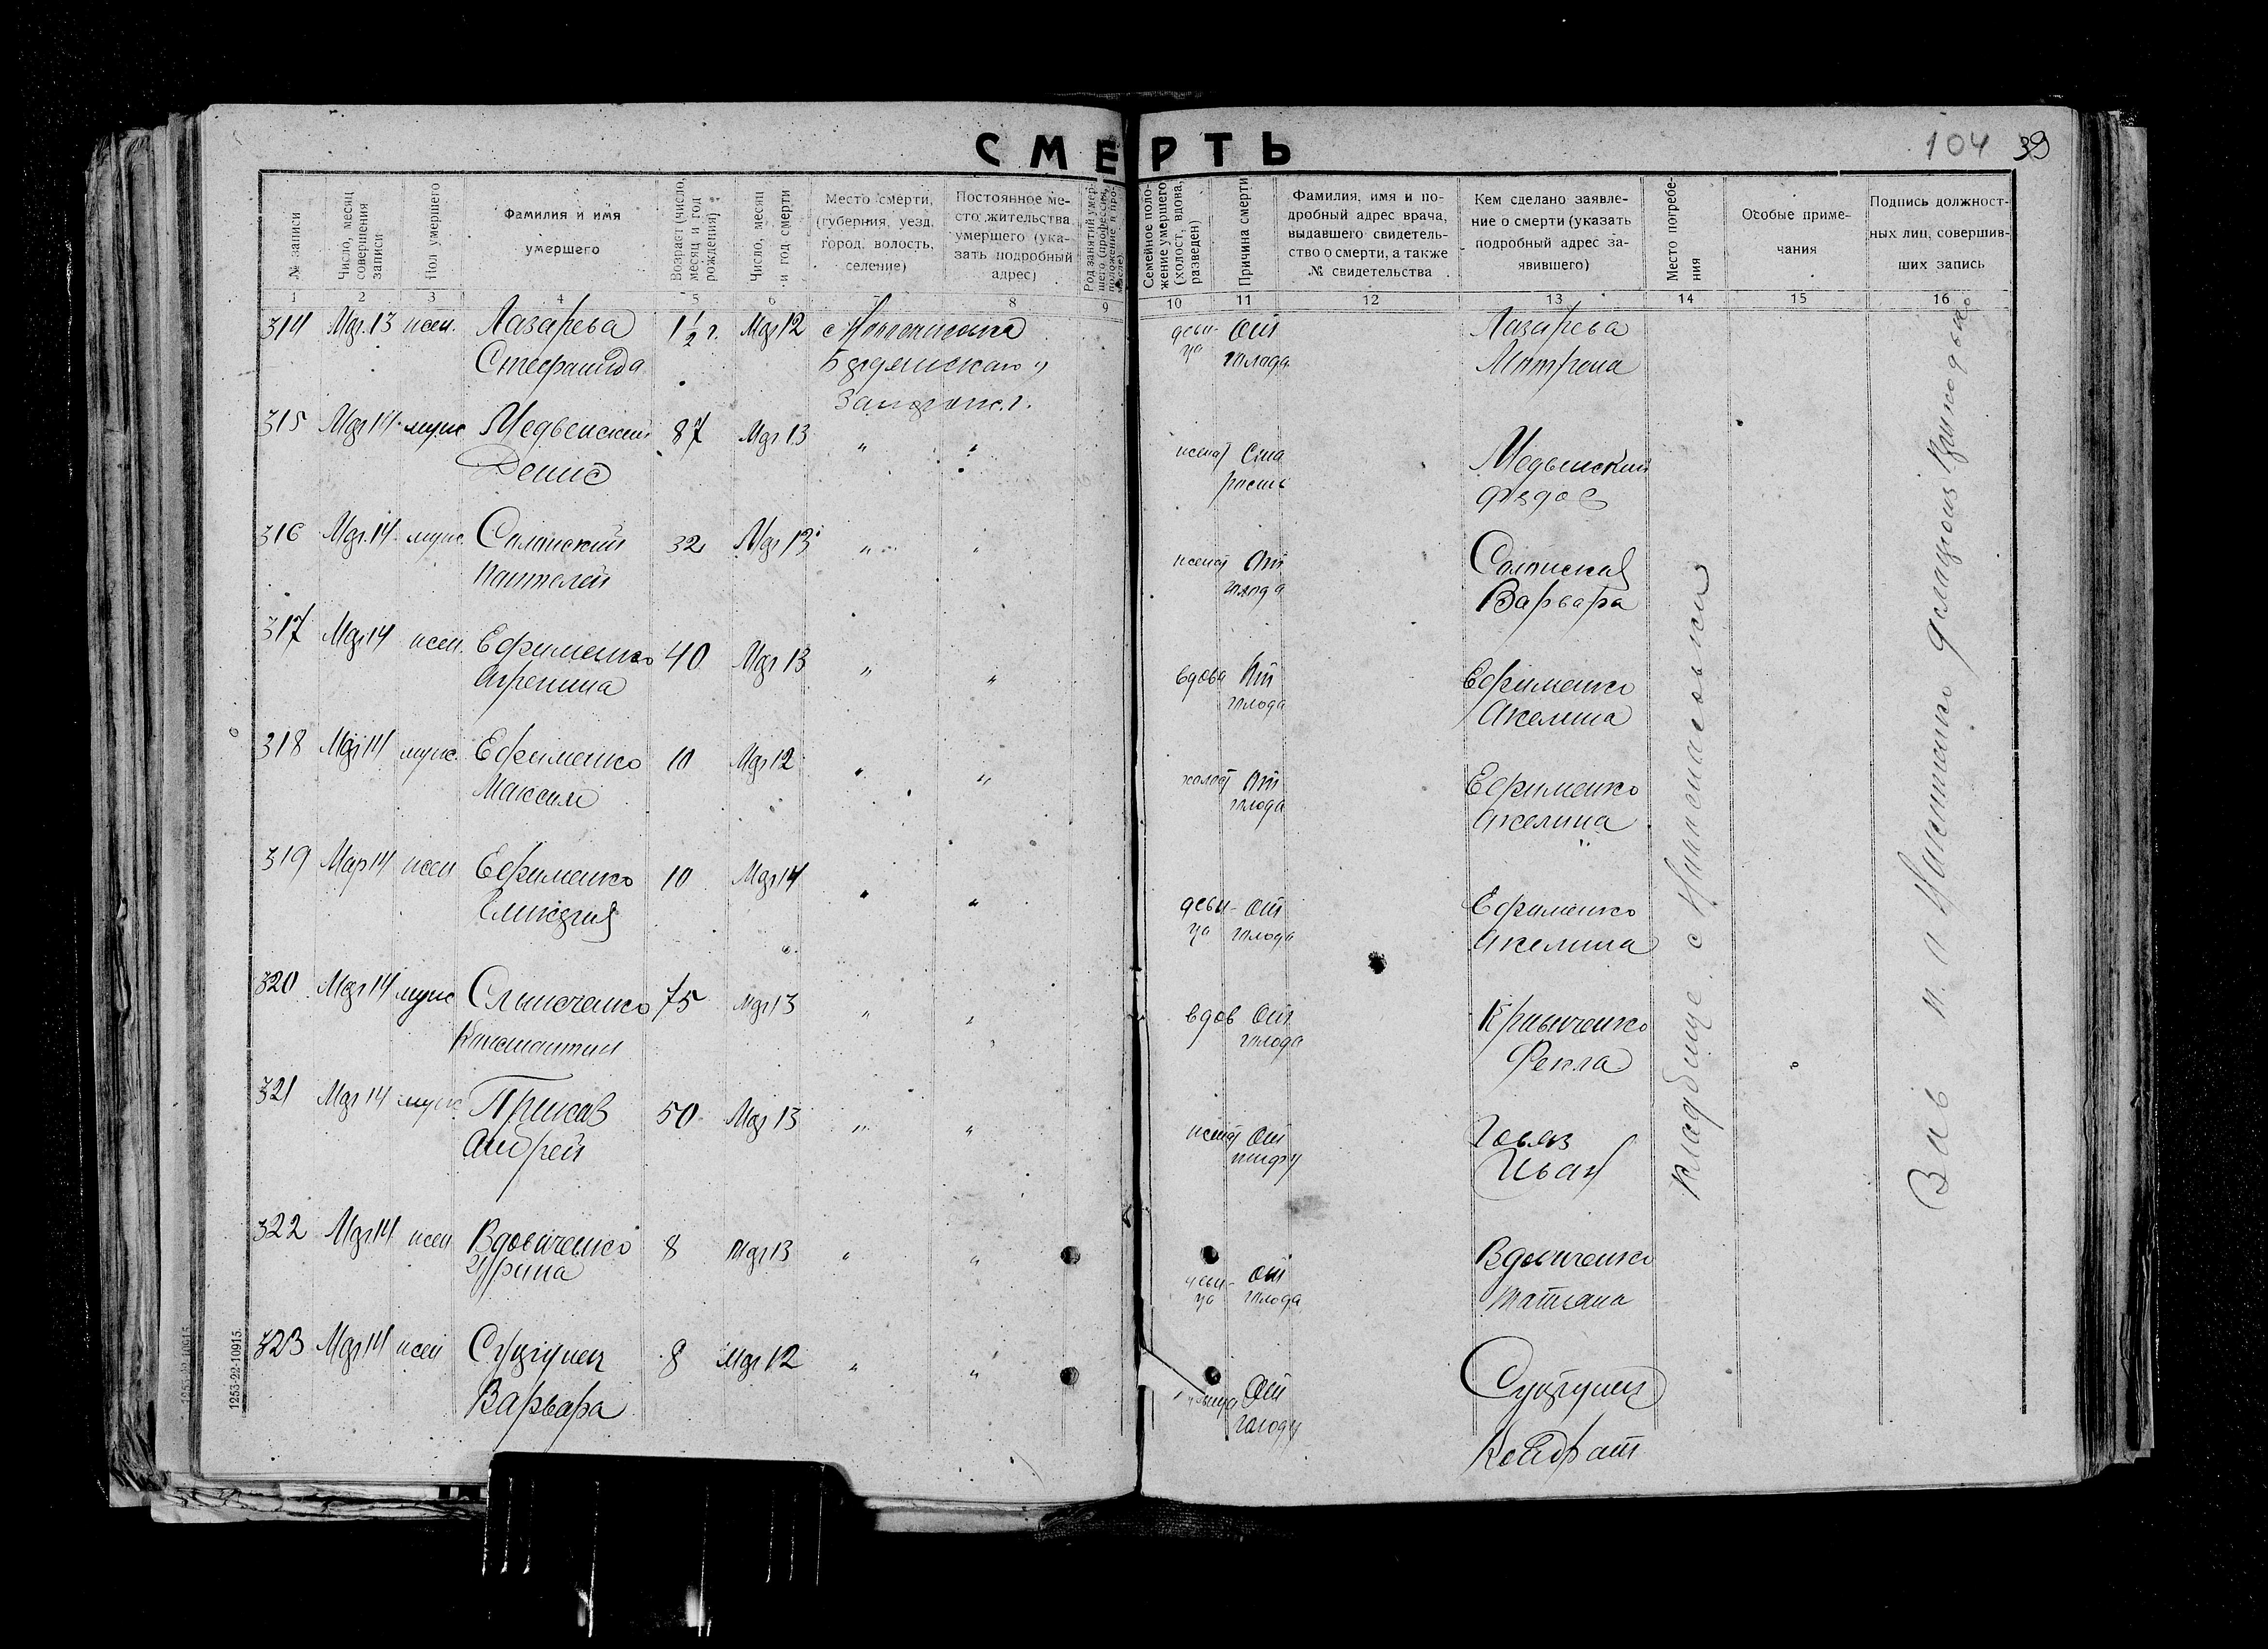 СМЕРТЬ
104 39
№ записи
Число, месяц совершения записи
Пол умершего
Фамилия и имя умершего
Возраст (число, месяц и год рождения)
Число, месяц и год смерти
Место смерти, (губерния, уезд, город, волость, селение)
Постоянное место жительства умершего (указать подробный адрес)
Род занятий умершего (профессия, положение в промысле)
Семейное положение умершего (холост, вдова, разведен)
Причина смерти
Фамилия, имя и подробный адрес врача, выдавшего свидетельство о смерти, а также № свидетельства
Кем сделано заявление о смерти (указать подробный адрес заявившего)
Место погребения
Особые примечания
Подпись должностных лиц, совершивших запись
1 2 3 4 5 6 7 8 9 10 11 12 13 14 15 16
314 Мар. 13 жен. Лазарева 1½ г. Мар 12 с деви- От Лазарева
Стефанида Бердянского у ца голода Мотрона
Запорож. г.
315 Мар 14 муж Медвенский 87 Мар 13 " " женат Ста Медвенский
Денис рость Федос
316 Мар. 14 муж. Солонский 32 Мар 13 " " женат От Солонская
Пантелей голода Варвара
317 Мар 14 жен. Ефименко 40 Мар 13 " " вдова От Ефименко
Агрепина голода Акелина
318 Мар 14 муж. Ефименко 10 Мар 12 " " холост От Ефименко
Максим голода Акелина
319 Мар 14 жен Ефименко 10 Мар 14 " " деви- от Ефименко
ца голода Акелина
320 Мар 14 муж 75 Мар 13 " " вдов От Кривченко
Константин голода Фекла
321 Мар 14 муж. 50 Мар 13 " " женат От
Андрей Иван
322 Мар 14 жен Вдовиченко 8 Мар 13 " " деви- От Вдовиченко
Ирина ца голода Татьяна
323 Мар 14 жен 8 Мар 12 " " девица От
Варвара голоду Кондрат
Кладбище с
1253-22-10915.